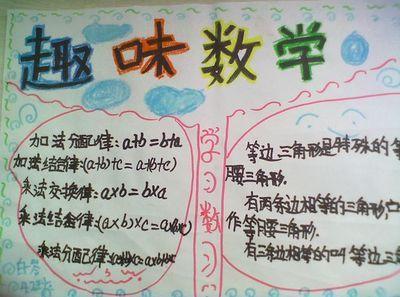 趣味数学
加法分配律:a+b=b+a
加法结合律:(a+b)+c=a+(b+c)
乘法交换律:a×b=b×a
乘法结合律:(a×b)×c=a×(b×c)
乘法分配律:
学
数
等边三角形是特殊的等
腰三角形.
有两条边相等的三角形,
作等腰三角形.
有三边相等的叫 等边三